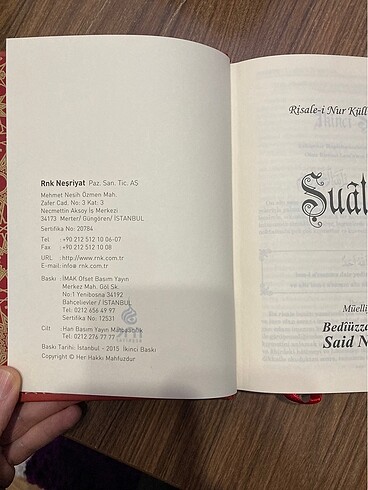 Rnk Neşriyat Paz. San. Tic. AŞ
Mehmet Nesih Özmen Mah.
Zafer Cad. No: 3 Kat: 3
Necmettin Aksoy İş Merkezi
34173 Merter/ Güngören/ İSTANBUL
Sertifika No: 20784
Tel : +90 212 512 10 06-07
Fax : +90 212 512 10 08
URL : http://www.rnk.com.tr
E-mail: info@ rnk.com.tr
Baskı : İMAK Ofset Basım Yayın
Merkez Mah. Göl Sk.
No:1 Yenibosna 34192
Bahçelievler / İSTANBUL
Tel: 0212 656 49 97
Sertifika No: 12531
Cilt : Han Basım Yayın Matbaacılık
Tel: 0212 276 77 77
Baskı Tarihi: İstanbul – 2015 İkinci Baskı
Copyright © Her Hakkı Mahfuzdur
Risale-i Nur Küll
Şuâl
Müelli
Bedîüzza
Said N